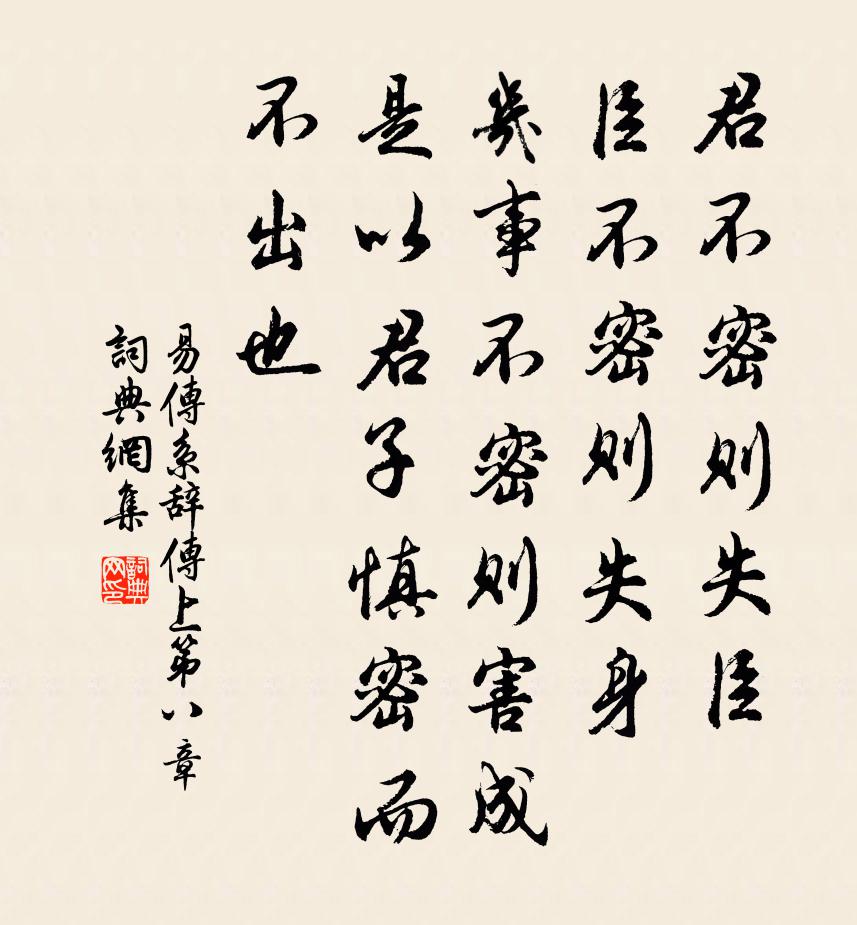 君不密则失臣
臣不密则失身
幾事不密则害成
是以君子慎密而
不出也
易傳系辞傳上第八章
詞典網集
詞典
网印